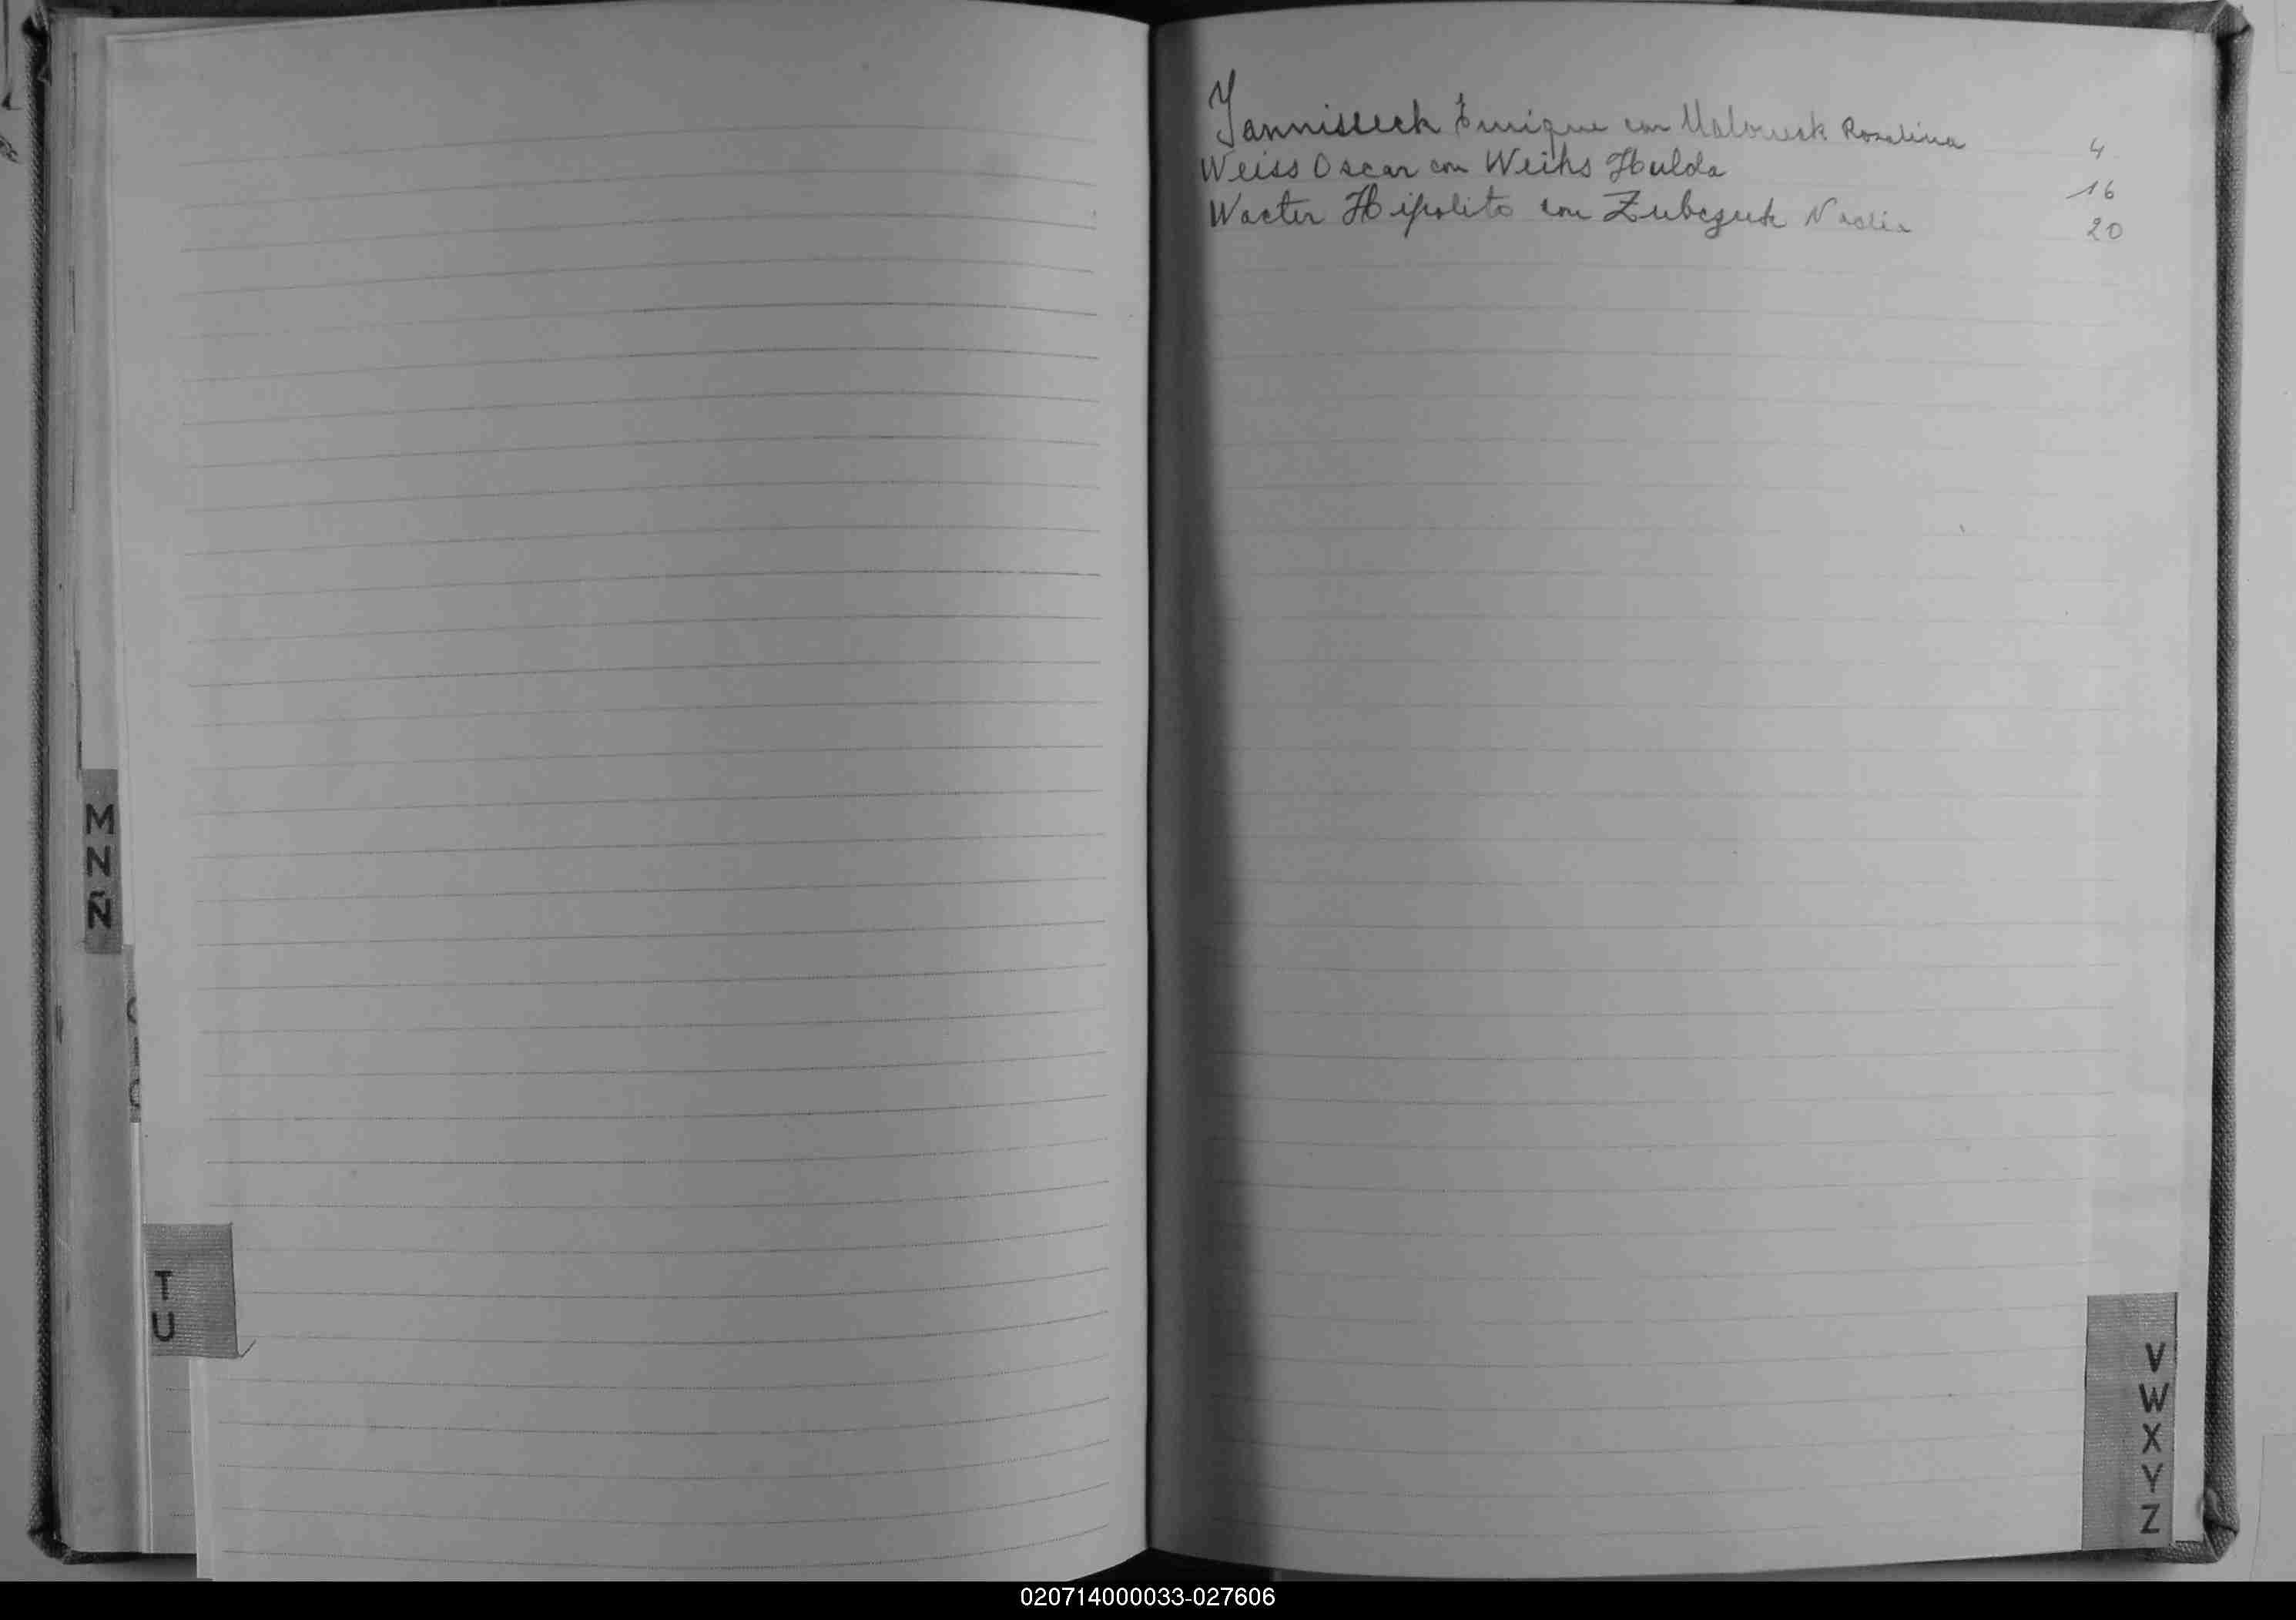 Yannisseck Enrique con Rosalina 4
Weiss Oscar con Weihs Hulda 16
Wacter Hipolito con Zubczuk Nadia 20
M
N
Ñ
T
U
V
W
X
Y
Z
020714000033-027606